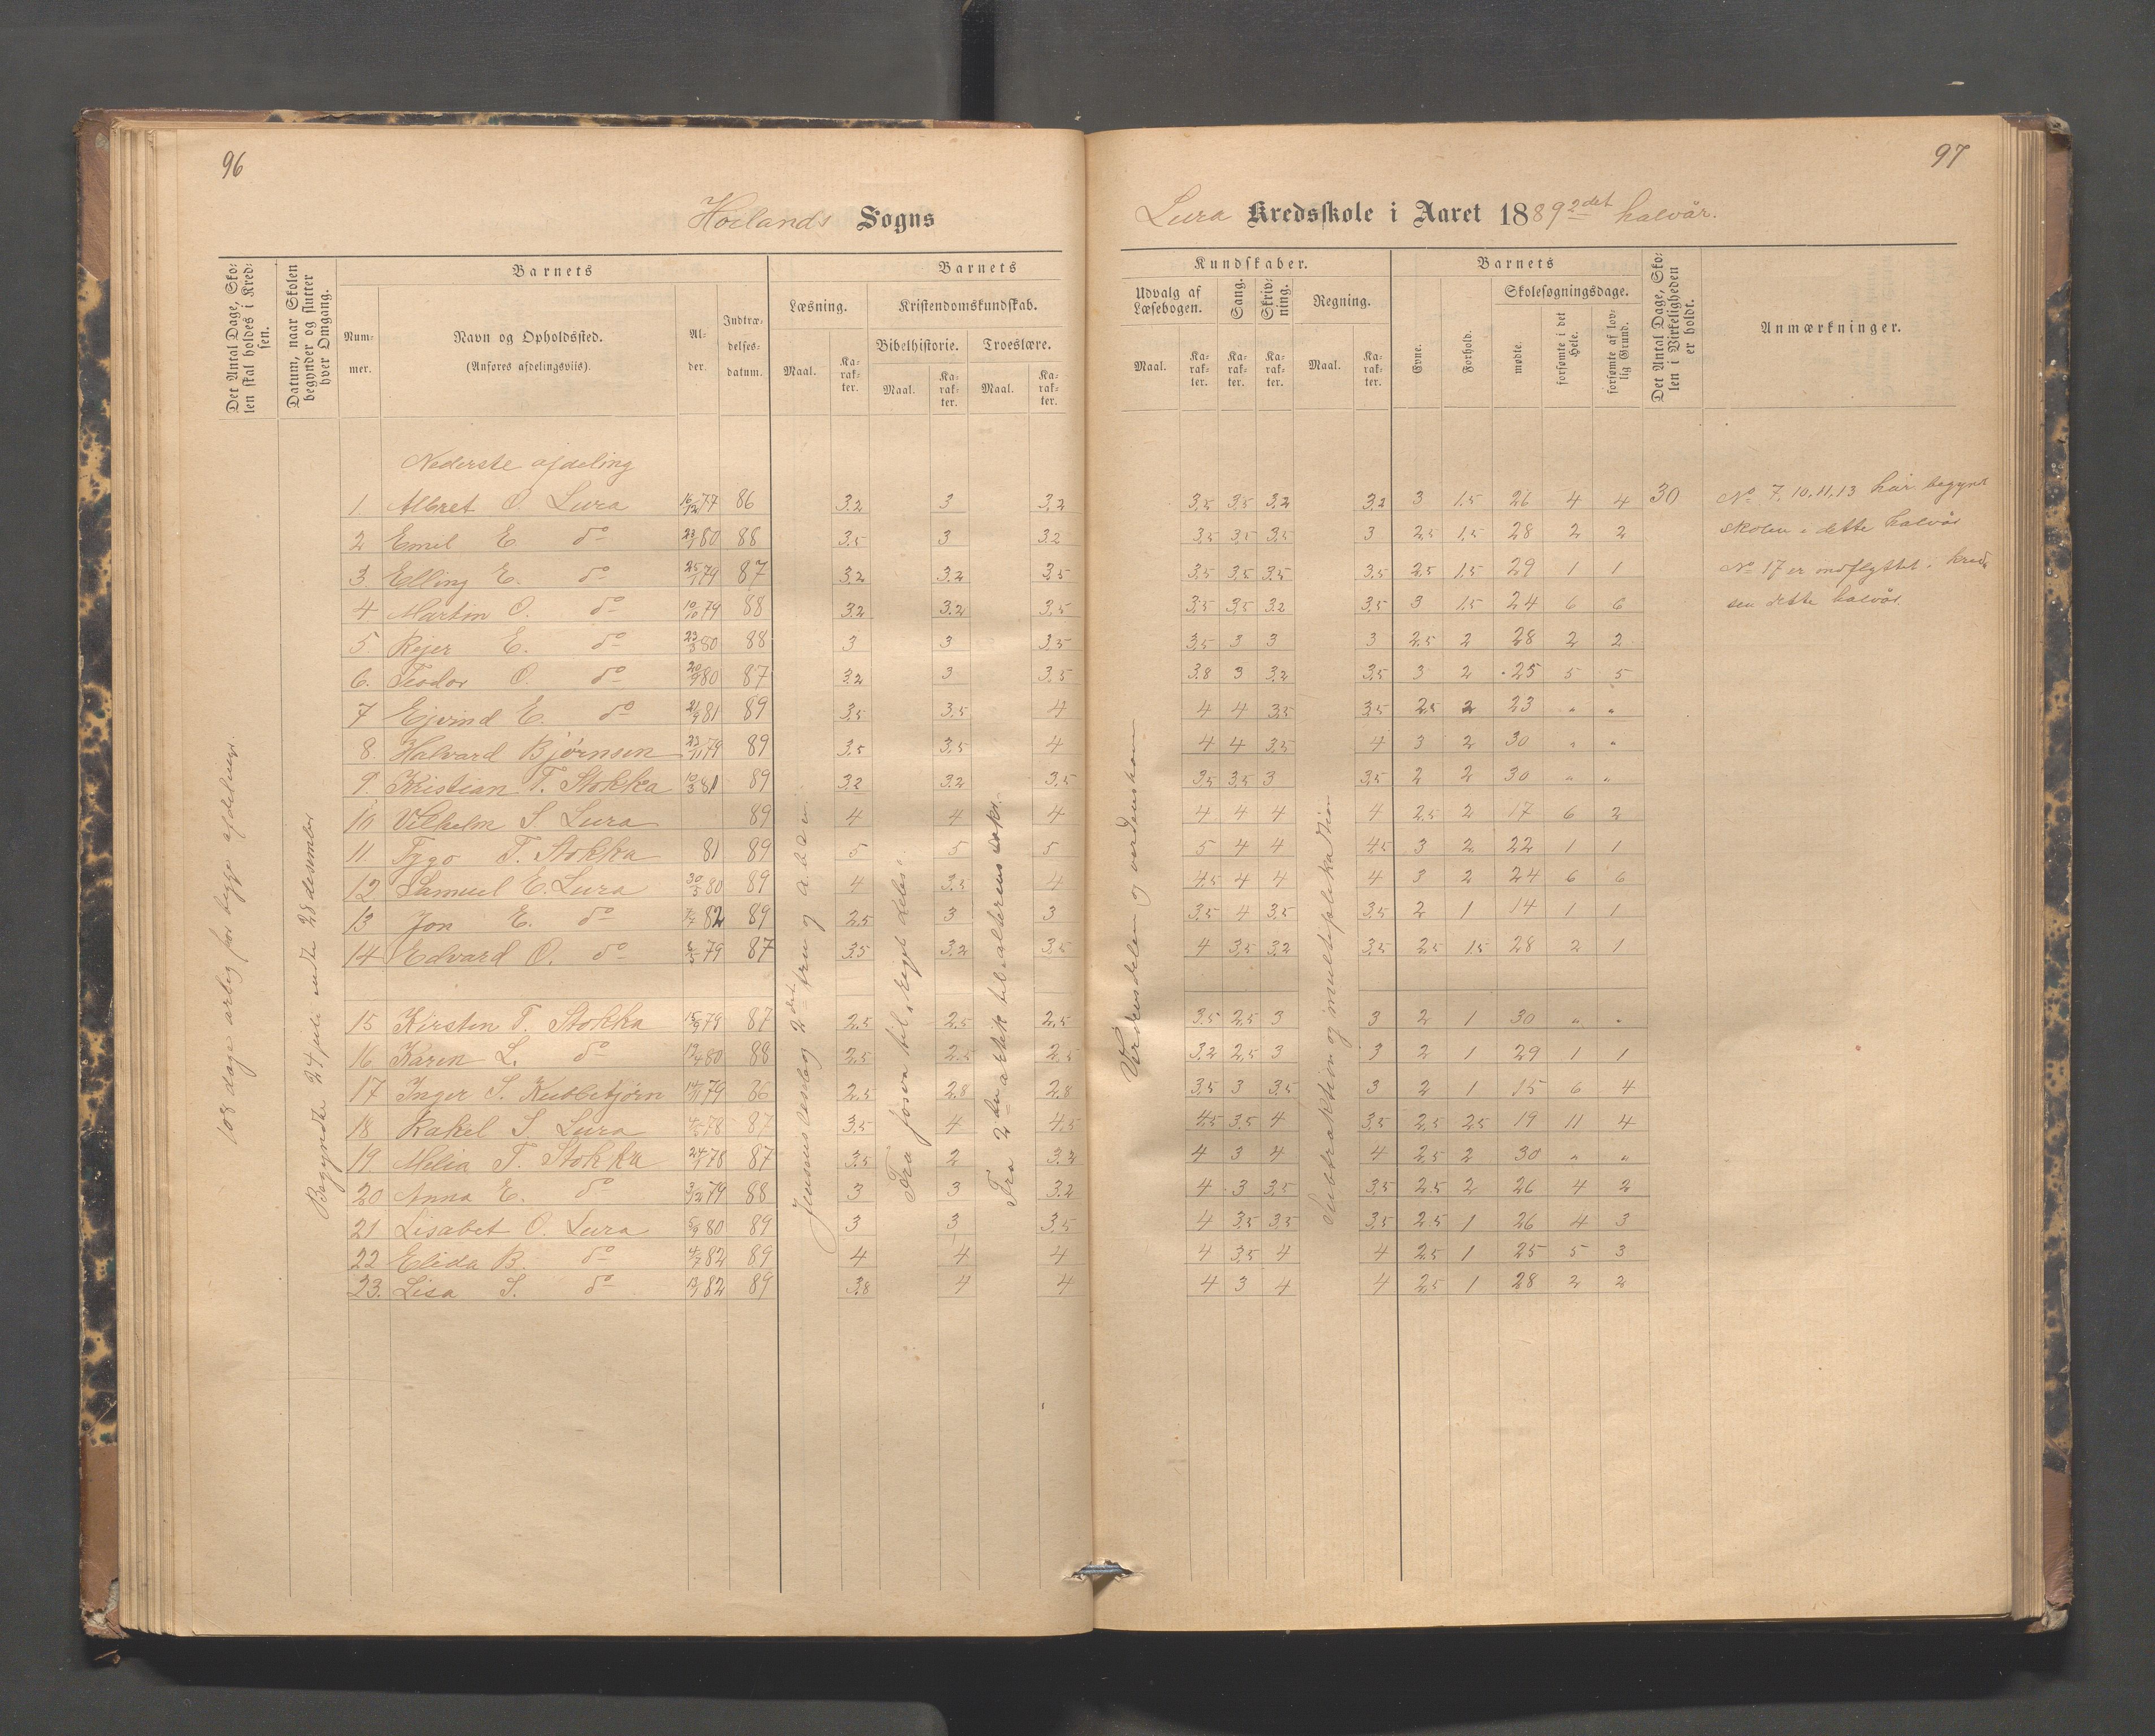 96
97
Hoilands Sogns
Lura Kredsskole i Aaret 1889 2det halvår.
Det Antal Dage, Sko-
len skal holdes i Kred-
sen.
Datum, naar Skolen
begynder og slutter
hver Omgang.
Barnets
Num-
mer.
Navn og Opholdssted.
(Anføres afdelingsviis).
Al-
der.
Indtræ-
delses-
datum.
Barnets
Læsning.
Maal.
Ka-
rak-
ter.
Kristendomskundskab.
Bibelhistorie.
Maal.
Ka-
rak-
ter.
Troeslære.
Maal.
Ka-
rak-
ter.
Kundskaber.
Udvalg af
Læsebogen.
Maal.
Ka-
rak-
ter.
Sang.
Ka-
rak-
ter.
Skriv-
ning.
Ka-
rak-
ter.
Regning.
Maal.
Ka-
rak-
ter.
Barnets
Evne.
Forhold.
Skolesøgningsdage.
mødte.
forsømte i det
Hele.
forsømte af lov-
lig Grund.
Det Antal Dage, Sko-
len i Virkeligheden
er holdt.
Anmærkninger.
108 dage årlig for begge afdelinger.
Begyndte 24 juli endte 28 desember
Nederste afdeling
1 Albret O. Lura 16/12 77 86 3.2 3 3,2 3,5 3,5 3,2 3,2 3 1.5 26 4 4 30
2 Emel E do 23/1 80 88 3.5 3 3.2 3,5 3,5 3,5 3 2,5 1,5 28 2 2
3 Elling E. do 25/1 79 87 3.2 3.2 3,5 3,5 3,5 3,5 3,5 2,5 1.5 29 1 1
4 Martin O. do 10/10 79 88 3.2 3.2 3,5 3,5 3,5 3,2 3,5 3 1.5 24 6 6
5. Rejer E. do 23/3 80 88 3 3 3,5 3,5 3 3 3 2.5 2 28 2 2
6. Teodor O. do 20/9 80 87 3.2 3 3,5 3.8 3 3,2 3,5 3 2 25 5 5
7 Ejvind E. do 21/9 81 89 3,5 3,5 4 4 4 3,5 3,5 2,5 2 23 " "
8. Halvard Bjørnsen 23/11 79 89 3,5 3,5 4 4 4 3,5 4 3 2 30 " "
9. Kristian T. Stokka 10/3 81 89 3.2 3.2 3,5 3,5 3,5 3 3,5 2 2 30 " "
10 Vilhelm S. Lura 89 4 4 4 4 4 4 4 2,5 2 17 6 2
11. Tygo T. Stokka 81 89 5 5 5 5 4 4 4,5 3 2 22 1 1
12 Samuel E. Lura 30/5 80 89 4 3.5 4 4,5 4 4 4 3 2 24 6 6
13 Jon E. do 7/7 82 89 2,5 3 3 3,5 4 3,5 3,5 2 1 14 1 1
14 Edvard O. do 6/5 79 87 3.5 3.2 3,5 4 3,5 3,2 3,5 2,5 1.5 28 2 1
15 Kirsten T. Stokka 15/9 79 87 2.5 2.5 2,5 3,5 2,5 3 3 2 1 30 " "
16 Karen L. do 19/4 80 88 2.5 2.5 2,5 3,2 2,5 3 3 2 1 29 1 1
17 Inger S. Kubbetjørn 14/11 79 86 2.5 2.8 2.8 3,5 3 3,5 3 2 1 15 6 4
18 Rakel S. Lura 78 87 3,5 4 4,5 4,5 3,5 4 3,5 2,5 2,5 19 11 4
19. Melia T. Stokka 24/1 78 87 3.5 2 3.2 4 3 4 4 2,5 2 30 " "
20 Anna E. do 3/12 79 88 3 3 3.2 4 3 3,5 3,5 2.5 2 26 4 2
21 Lisabet O. Lura 5/9 80 89 3 3 3,5 4 3,5 3,5 3,5 2.5 1 26 4 3
22 Elida B. do 4/7 82 89 4 4 4 4 3,5 4 4 2.5 1 25 5 3
23. Lisa S. do 13/1 82 89 3.8 4 4 4 3 4 4 2,5 1 28 2 2
Jensens læsebog 2det trin og a.b.d en
Fra Josva til riget deles
Fra 2den artik til alterens sakr.
Verdensdelen og verdenshavn
Subtraktion og multiplikation
No 7, 10, 11, 13 har begynt
skolen i dette halvår
No 17 er indflyttet i kred
sen dette halvår